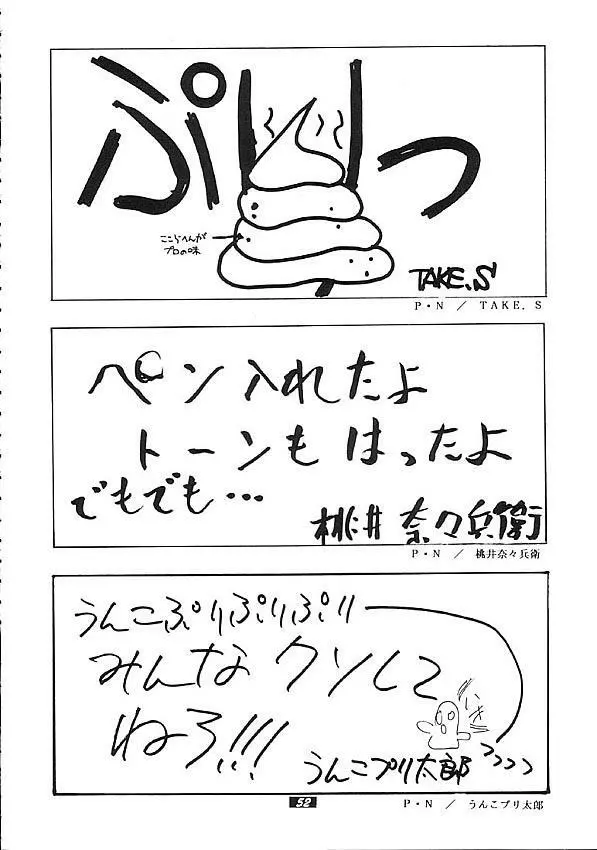 ぷりっ
ここらへんが
プロの味
TAKE.S
P・N ／ TAKE. S
ペン入れたよ
トーンも はったよ
でもでも…
桃井 奈々兵衛
P・N ／ 桃井奈々兵衛
うんこぷりぷりぷり
みんな クソして
ねろ!!!
うんこプリ太郎
52
P・N ／ うんこプリ太郎